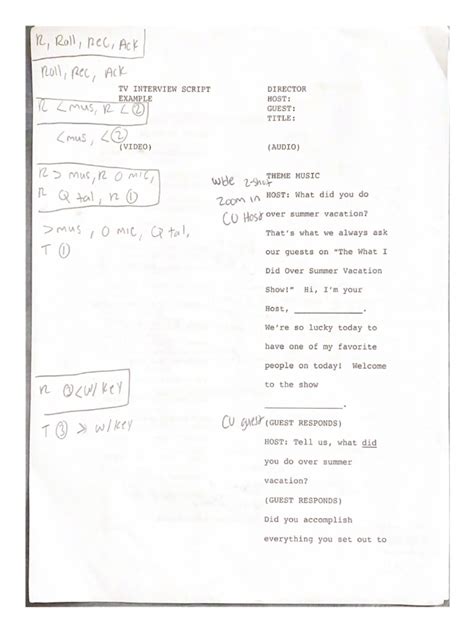 R, Roll, Rec, Ack
Roll, Rec, Ack
TV INTERVIEW SCRIPT
EXAMPLE
DIRECTOR
HOST:
GUEST:
TITLE:
R < mus, R < ②
< mus, < ②
(VIDEO)
(AUDIO)
R > mus, R O mic,
R Q tal, R ①
> mus, O mic, Q tal,
T ①
THEME MUSIC
wide 2-shot
zoom in
CU Host
HOST: What did you do
over summer vacation?
That's what we always ask
our guests on "The What I
Did Over Summer Vacation
Show!" Hi, I'm your
Host, ____________.
We're so lucky today to
have one of my favorite
people on today! Welcome
to the show
____________.
R ③ < w/ key
T ③ > w/ key
CU guest
(GUEST RESPONDS)
HOST: Tell us, what did
you do over summer
vacation?
(GUEST RESPONDS)
Did you accomplish
everything you set out to